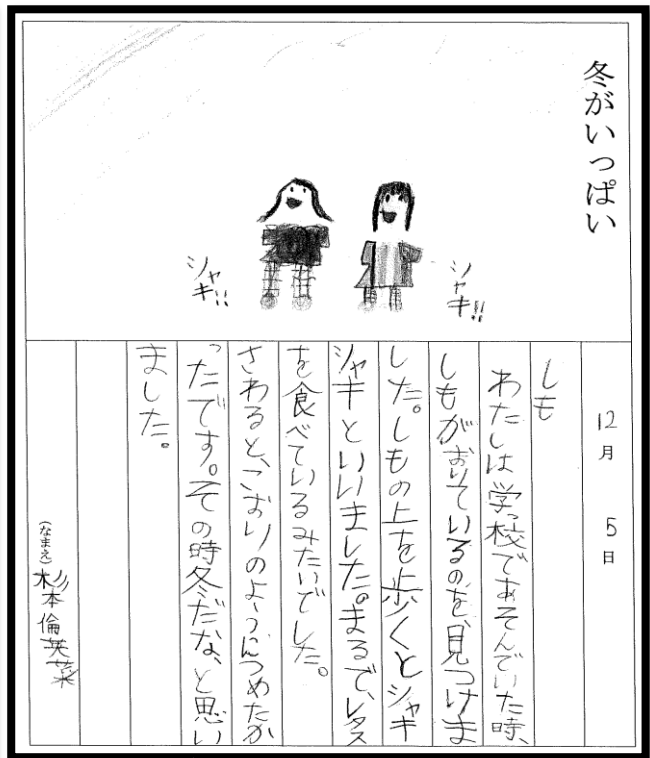 冬がいっぱい
シャキ!!
シャキ!!
12月5日
しも
わたしは学校であそんでいた時、
しもがおりているのを、見つけま
した。しもの上を歩くとシャキ
シャキといいました。まるで、レタス
を食べているみたいでした。
さわると、こおりのようにつめたか
ったです。その時冬だな、と思い
ました。
(なまえ)杉本倫英菜